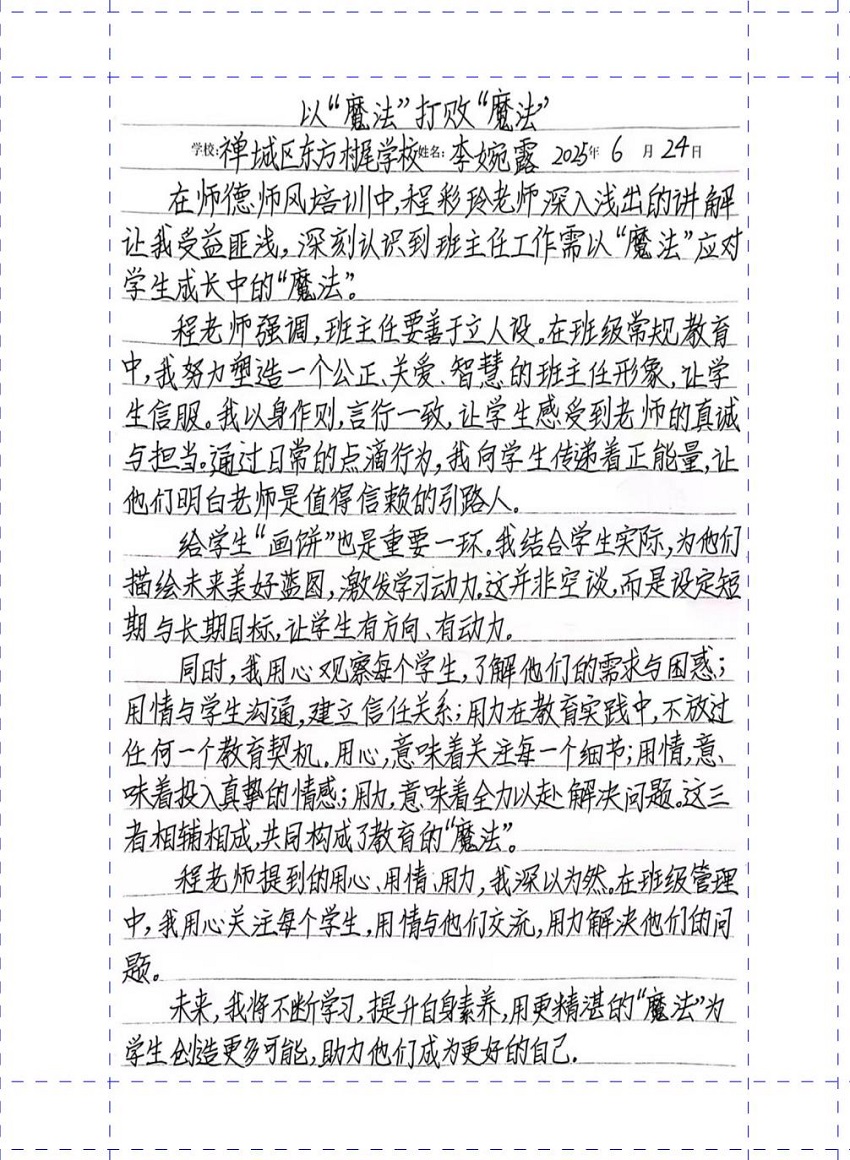 以“魔法”打败“魔法”
学校:禅城区东方村尾学校姓名:李婉露 2025年 6 月 24日
在师德师风培训中,程彩玲老师深入浅出的讲解
让我受益匪浅,深刻认识到班主任工作需以“魔法”应对
学生成长中的“魔法”。
程老师强调,班主任要善于立人设。在班级常规教育
中,我努力塑造一个公正、关爱、智慧的班主任形象,让学
生信服。我以身作则,言行一致,让学生感受到老师的真诚
与担当。通过日常的点滴行为,我向学生传递着正能量,让
他们明白老师是值得信赖的引路人。
给学生“画饼”也是重要一环。我结合学生实际,为他们
描绘未来美好蓝图,激发学习动力。这并非空谈,而是设定短
期与长期目标,让学生有方向、有动力。
同时,我用心观察每个学生,了解他们的需求与困惑;
用情与学生沟通,建立信任关系;用力在教育实践中,不放过
任何一个教育契机。用心,意味着关注每一个细节;用情,意
味着投入真挚的情感;用力,意味着全力以赴解决问题。这三
者相辅相成,共同构成了教育的“魔法”。
程老师提到的用心、用情、用力,我深以为然。在班级管理
中,我用心关注每个学生,用情与他们交流,用力解决他们的问
题。
未来,我将不断学习,提升自身素养,用更精湛的“魔法”为
学生创造更多可能,助力他们成为更好的自己.